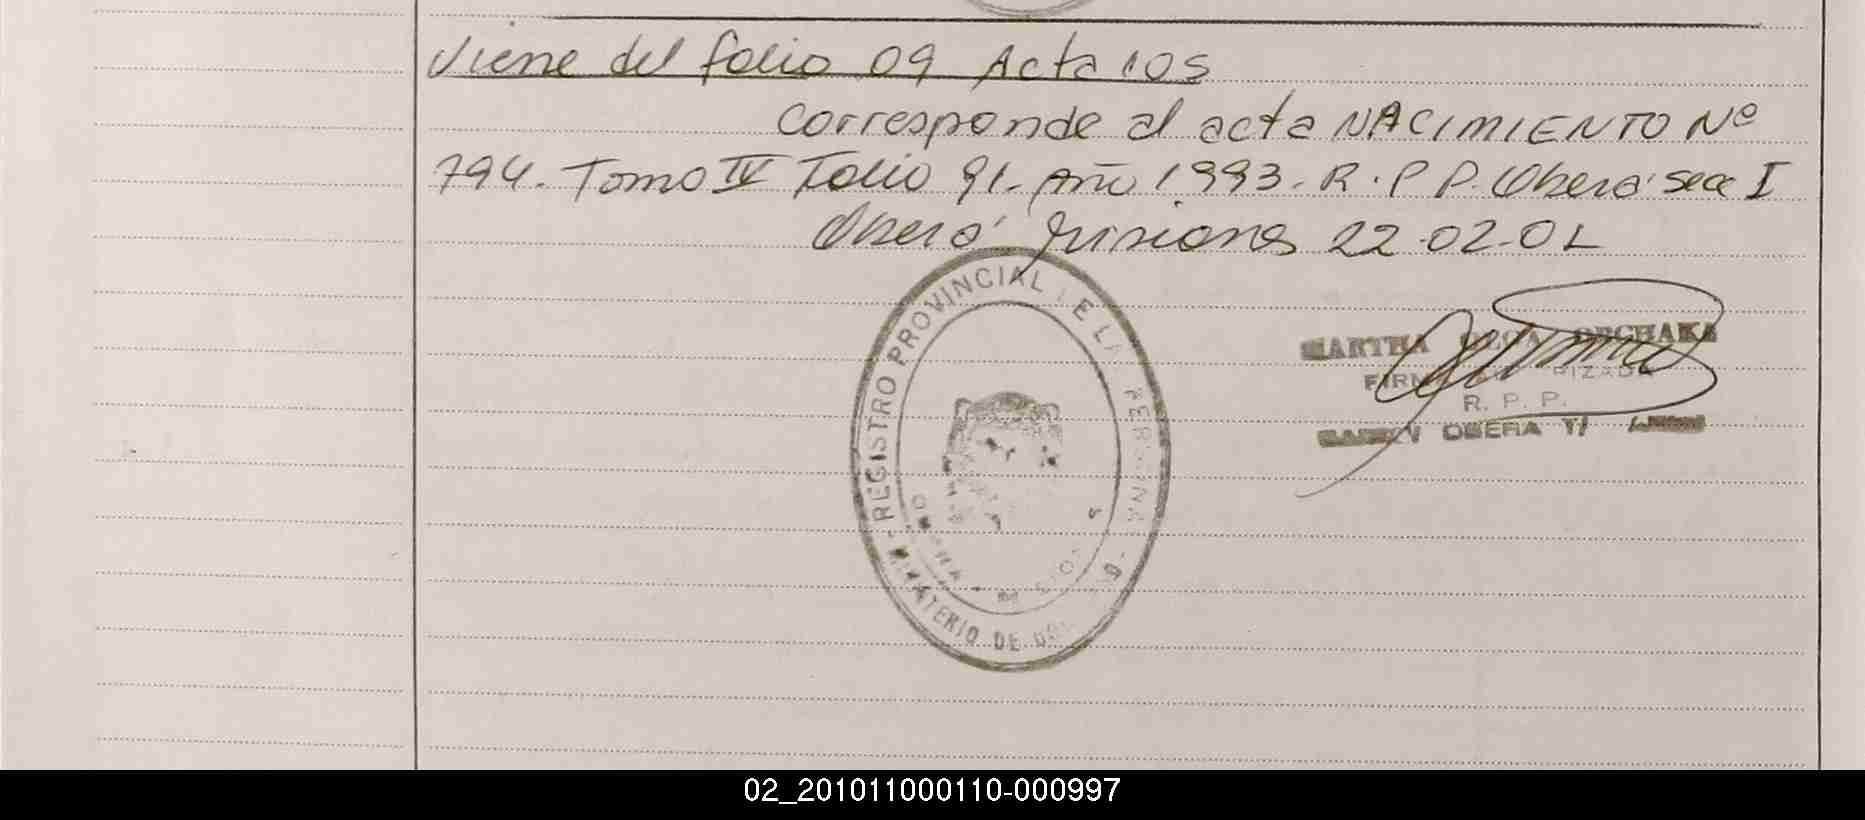 Viene del folio 09 Acta 105
Corresponde al acta NACIMIENTO Nº
794. Tomo IV Folio 91. Año 1993. R.P P. Oberá secc I
Oberá Misiones 22-02-02
REGISTRO PROVINCIAL DE LAS PERSONAS
MINISTERIO DE
MARTHA OLGA
FIRMA AUTORIZADA
R. P. P.
OBERA
02_201011000110-000997